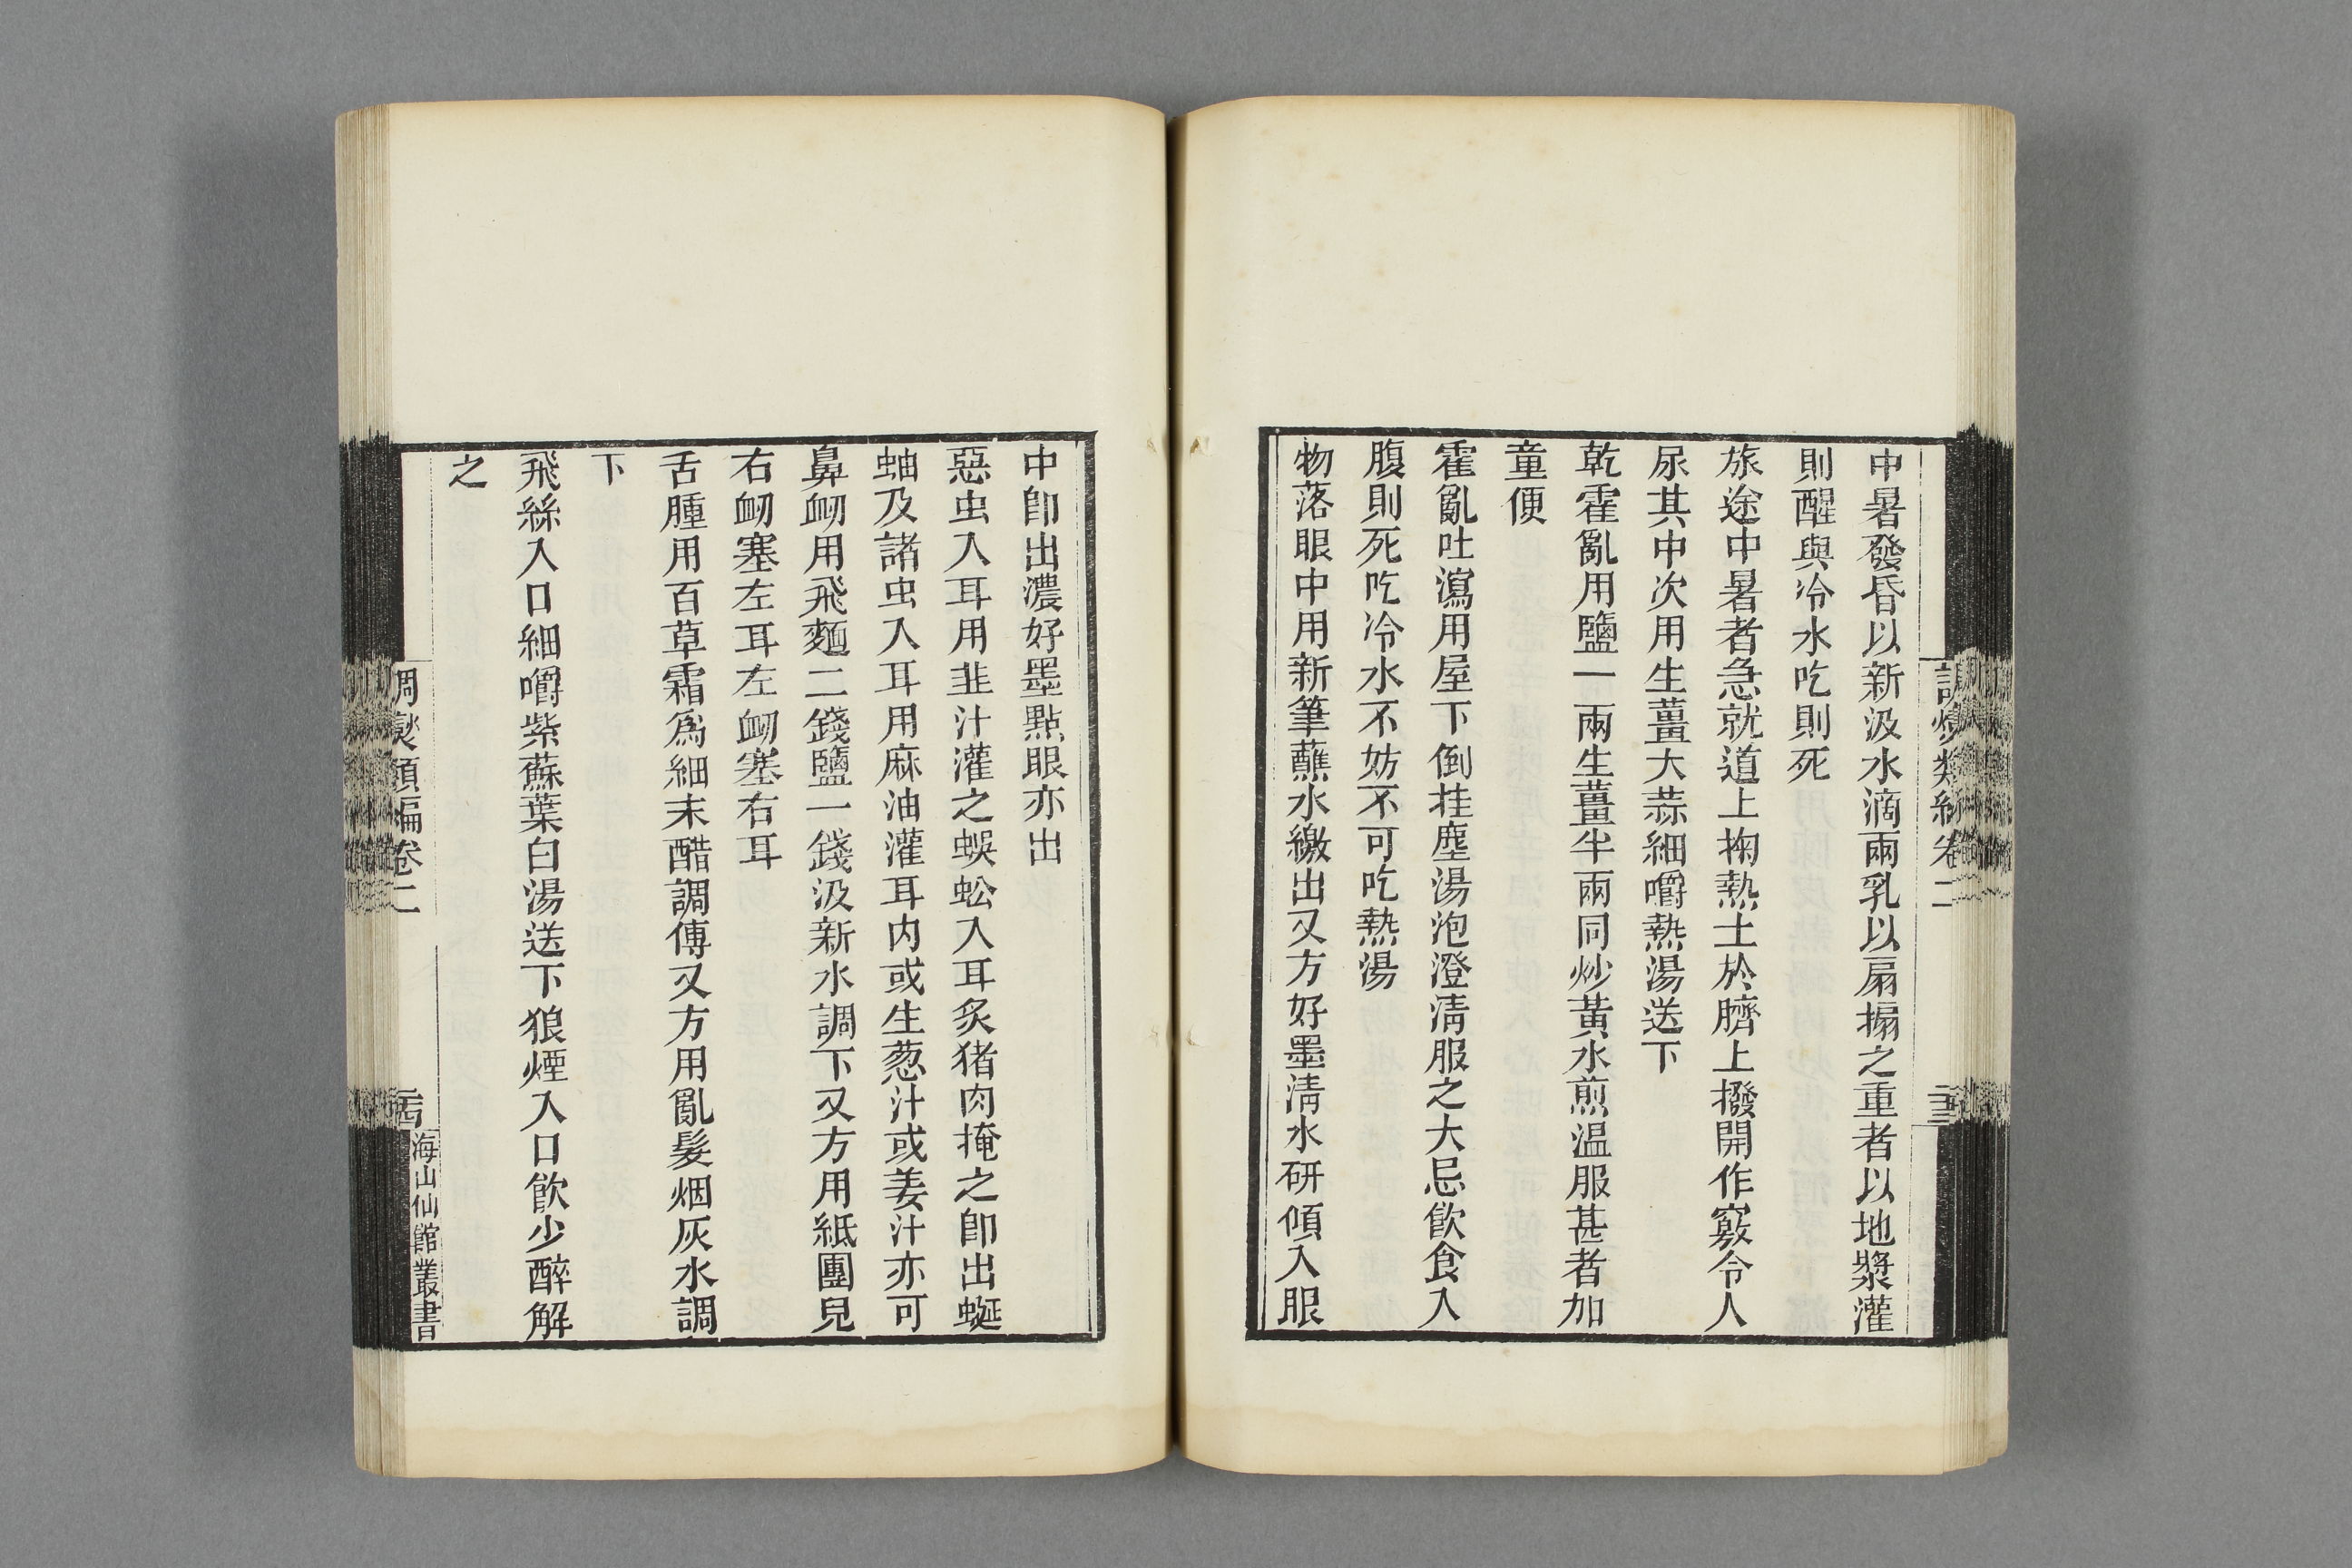 中暑發昏以新汲水滴兩乳以扇搧之重者以地漿灌
則醒與冷水吃則死
旅途中暑者急就道上掬熱土於臍上撥開作竅令人
尿其中次用生薑大蒜細嚼熱湯送下
乾霍亂用鹽一兩生薑半兩同炒黃水煎温服甚者加
童便
霍亂吐瀉用屋下倒挂塵湯泡澄清服之大忌飲食入
腹則死吃冷水不妨不可吃熱湯
物落眼中用新筆蘸水繳出又方好墨清水研傾入眼
中卽出濃好墨點眼亦出
惡虫入耳用韭汁灌之蜈蚣入耳炙猪肉掩之卽出蜒
蚰及諸虫入耳用麻油灌耳内或生葱汁或姜汁亦可
鼻衂用飛麵二錢鹽一錢汲新水調下又方用紙團兒
右衂塞左耳左衂塞右耳
舌腫用百草霜爲細末醋調傅又方用亂髮烟灰水調
下
飛絲入口細嚼紫蘇葉白湯送下狼煙入口飮少醉解
之
調燮類編卷二
二十三
調燮類編卷二
二十四
海山仙館叢書